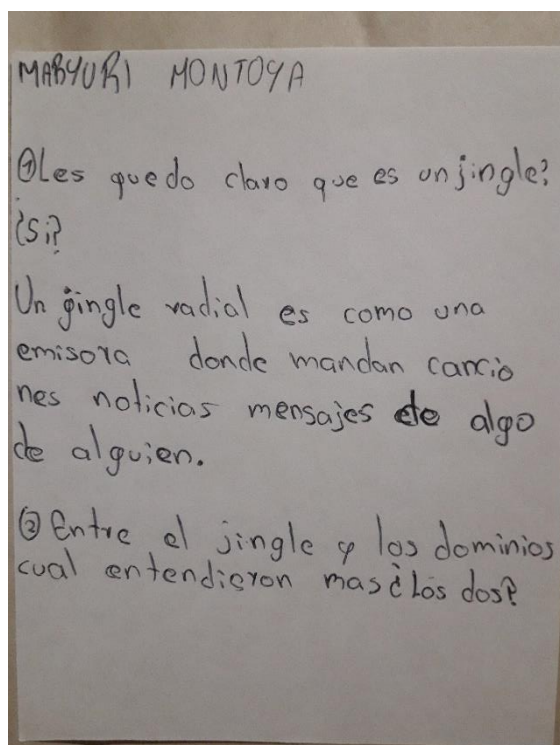 MARYURI MONTOYA
①Les quedo claro que es un jingle?
¿Si?
Un gingle radial es como una
emisora donde mandan cancio
nes noticias mensajes de algo
de alguien.
② Entre el jingle y los dominios
cual entendieron mas ¿Los dos?